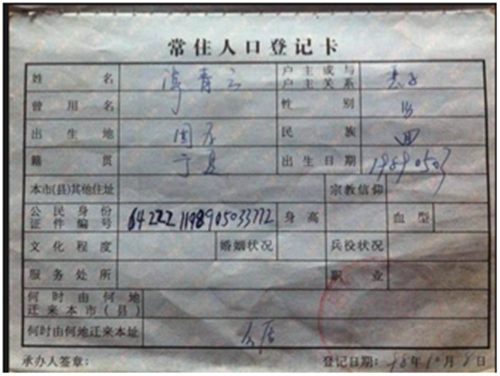 常住人口登记卡
姓名 青云 户主或与户主关系 长子
曾用名 性别 男
出生地 固原 民族 回
籍贯 宁夏 出生日期 19890503
本市(县)其他住址 宗教信仰
公民身份证件编号 身高 血型
文化程度 婚姻状况 兵役状况
服务处所 职业
何时由何地迁来本市(县)
何时由何地迁来本址 久居
承办人签章: 登记日期: 98年10月8日